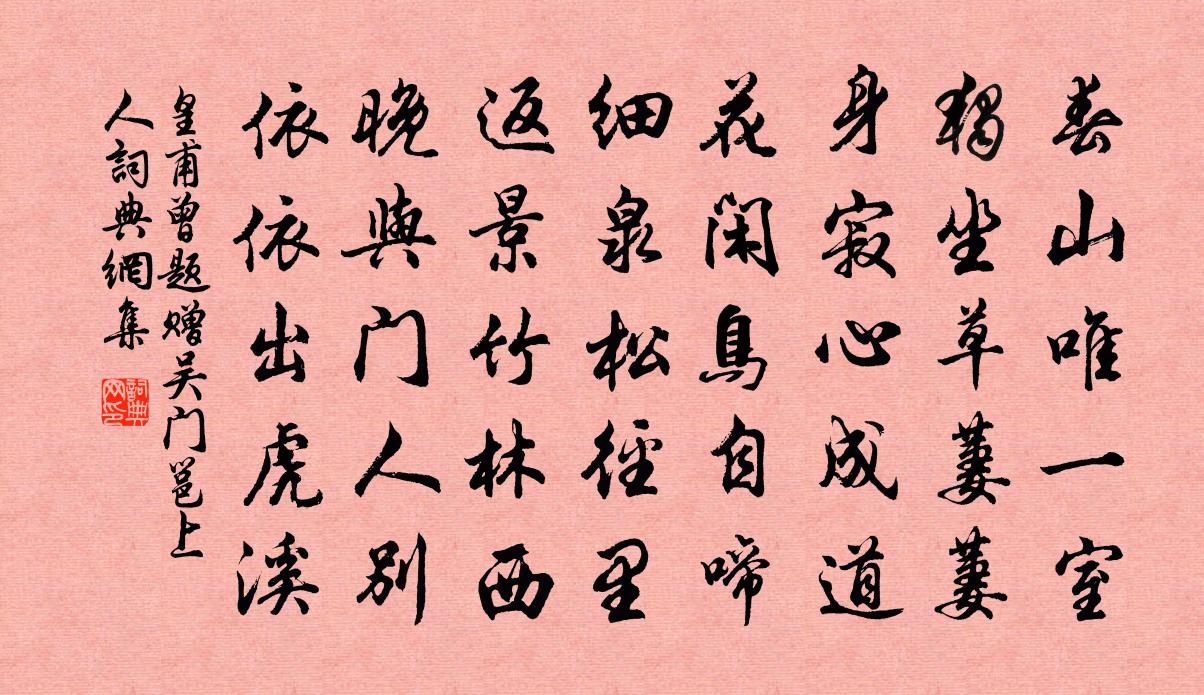 春山唯一室
獨坐草萋萋
身寂心成道
花閑鳥自啼
细泉松徑里
返景竹林西
晚與门人别
依依出虎溪
皇甫曾题赠吴门邕上
人詞典網集
詞典网印